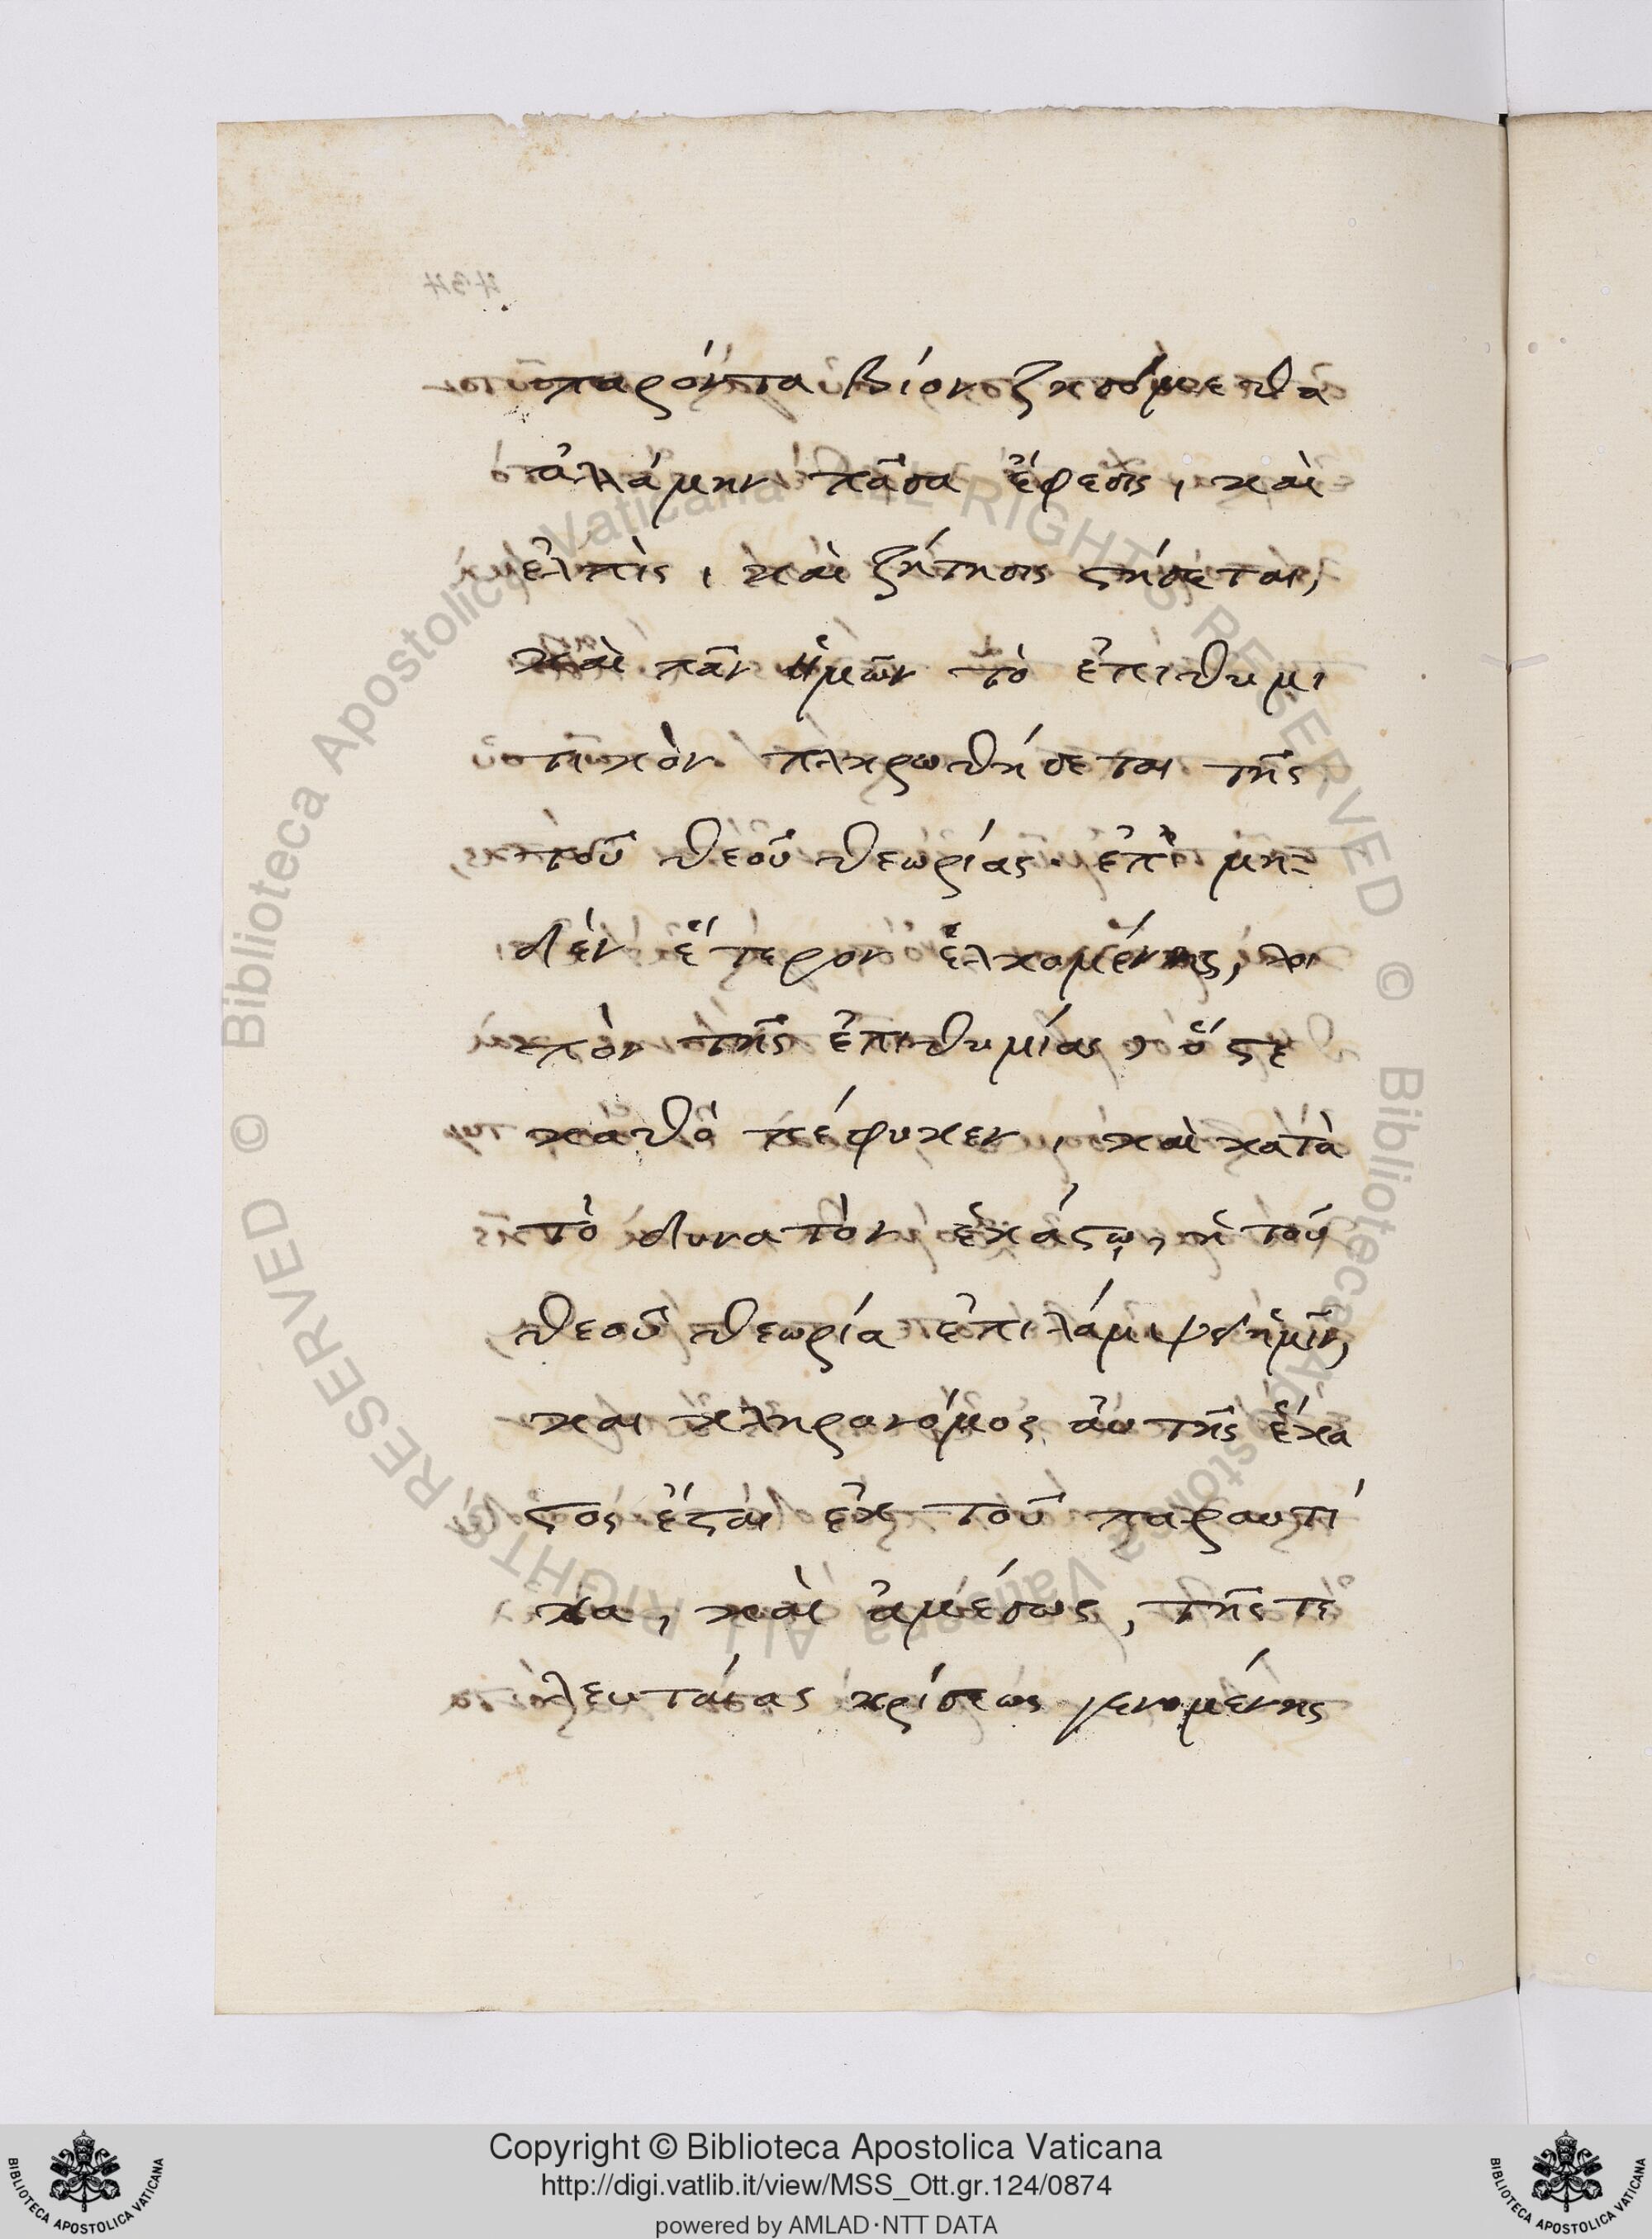 παρόντα βίον ζησόμεθα
ἀλλάμην πᾶσα ἔφεσις, καὶ
ἐλπὶς, καὶ ζήτησις ϛήσεται,
καὶ πᾶν ἡμῶν τὸ ἐπιθυμι
τικὸν πληρωθήσεται τῆς
τοῦ θεοῦ θεωρίας. ἐπὶ μη-
δὲν ἕτερον ἑλκομένης, λοι
πὸν τῆς ἐπιθυμίας, ὅϛε
καθὸ πέφυκεν, καὶ κατὰ
τὸ δυνατὸν ἑκάϛῳ, ἡ τοῦ
θεοῦ θεωρία ἐπιλάμψει ἡμῖν,
και κληρονόμος αὐτῆς ἕκα
ϛος ἔϛαι ἐκ τοῦ παραυτί
κα, καὶ ἀμέσως, τῆς τε
λευταίας κρίσεως γενομένης
Copyright © Biblioteca Apostolica Vaticana
http://digi.vatlib.it/view/MSS_Ott.gr.124/0874
powered by AMLAD·NTT DATA
BIBLIOTECA APOSTOLICA VATICANA
BIBLIOTECA APOSTOLICA VATICANA
© Biblioteca Apostolica Vaticana ALL RIGHTS RESERVED
© Biblioteca Apostolica Vaticana ALL RIGHTS RESERVED